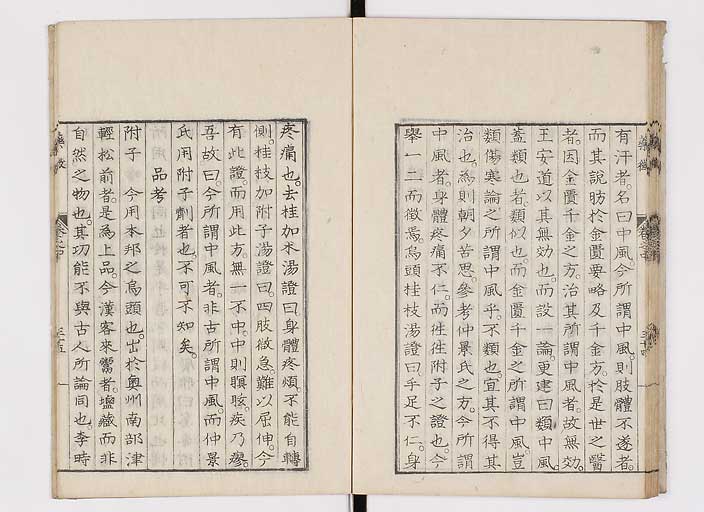 有汗者。名曰中風。今所謂中風。則肢體不遂者。
而其說昉於金匱要略及千金方。於是世之醫
者。因金匱千金之方。治其所謂中風者。故無効。
王安道以其無効也。而設一論。更建曰類中風。
蓋類也者。類似也。而金匱千金之所謂中風。豈
類傷寒論之所謂中風乎。不類也。宜其不得其
治也。爲則朝夕苦思。參考仲景氏之方。今所謂
中風者。身體疼痛不仁。而往往附子之證也。今
舉一二而徵焉。烏頭桂枝湯證曰。手足不仁。身
疼痛也。去桂加朮湯證曰。身體疼煩。不能自轉
側。桂枝加附子湯證曰。四肢微急。難以屈伸。今
有此證。而用此方。無一不中。中則瞑眩。疾乃瘳。
吾故曰。今所謂中風者。非古所謂中風。而仲景
氏用附子劑者也。不可不知矣。
品考
附子 今用本邦之烏頭也。出於奧州南部津
輕松前者。是爲上品。今漢客來鬻者。鹽藏而非
自然之物也。其功能不與古人所論同也。李時
藥徵
卷之中
三十四
藥徵
卷之中
三十五